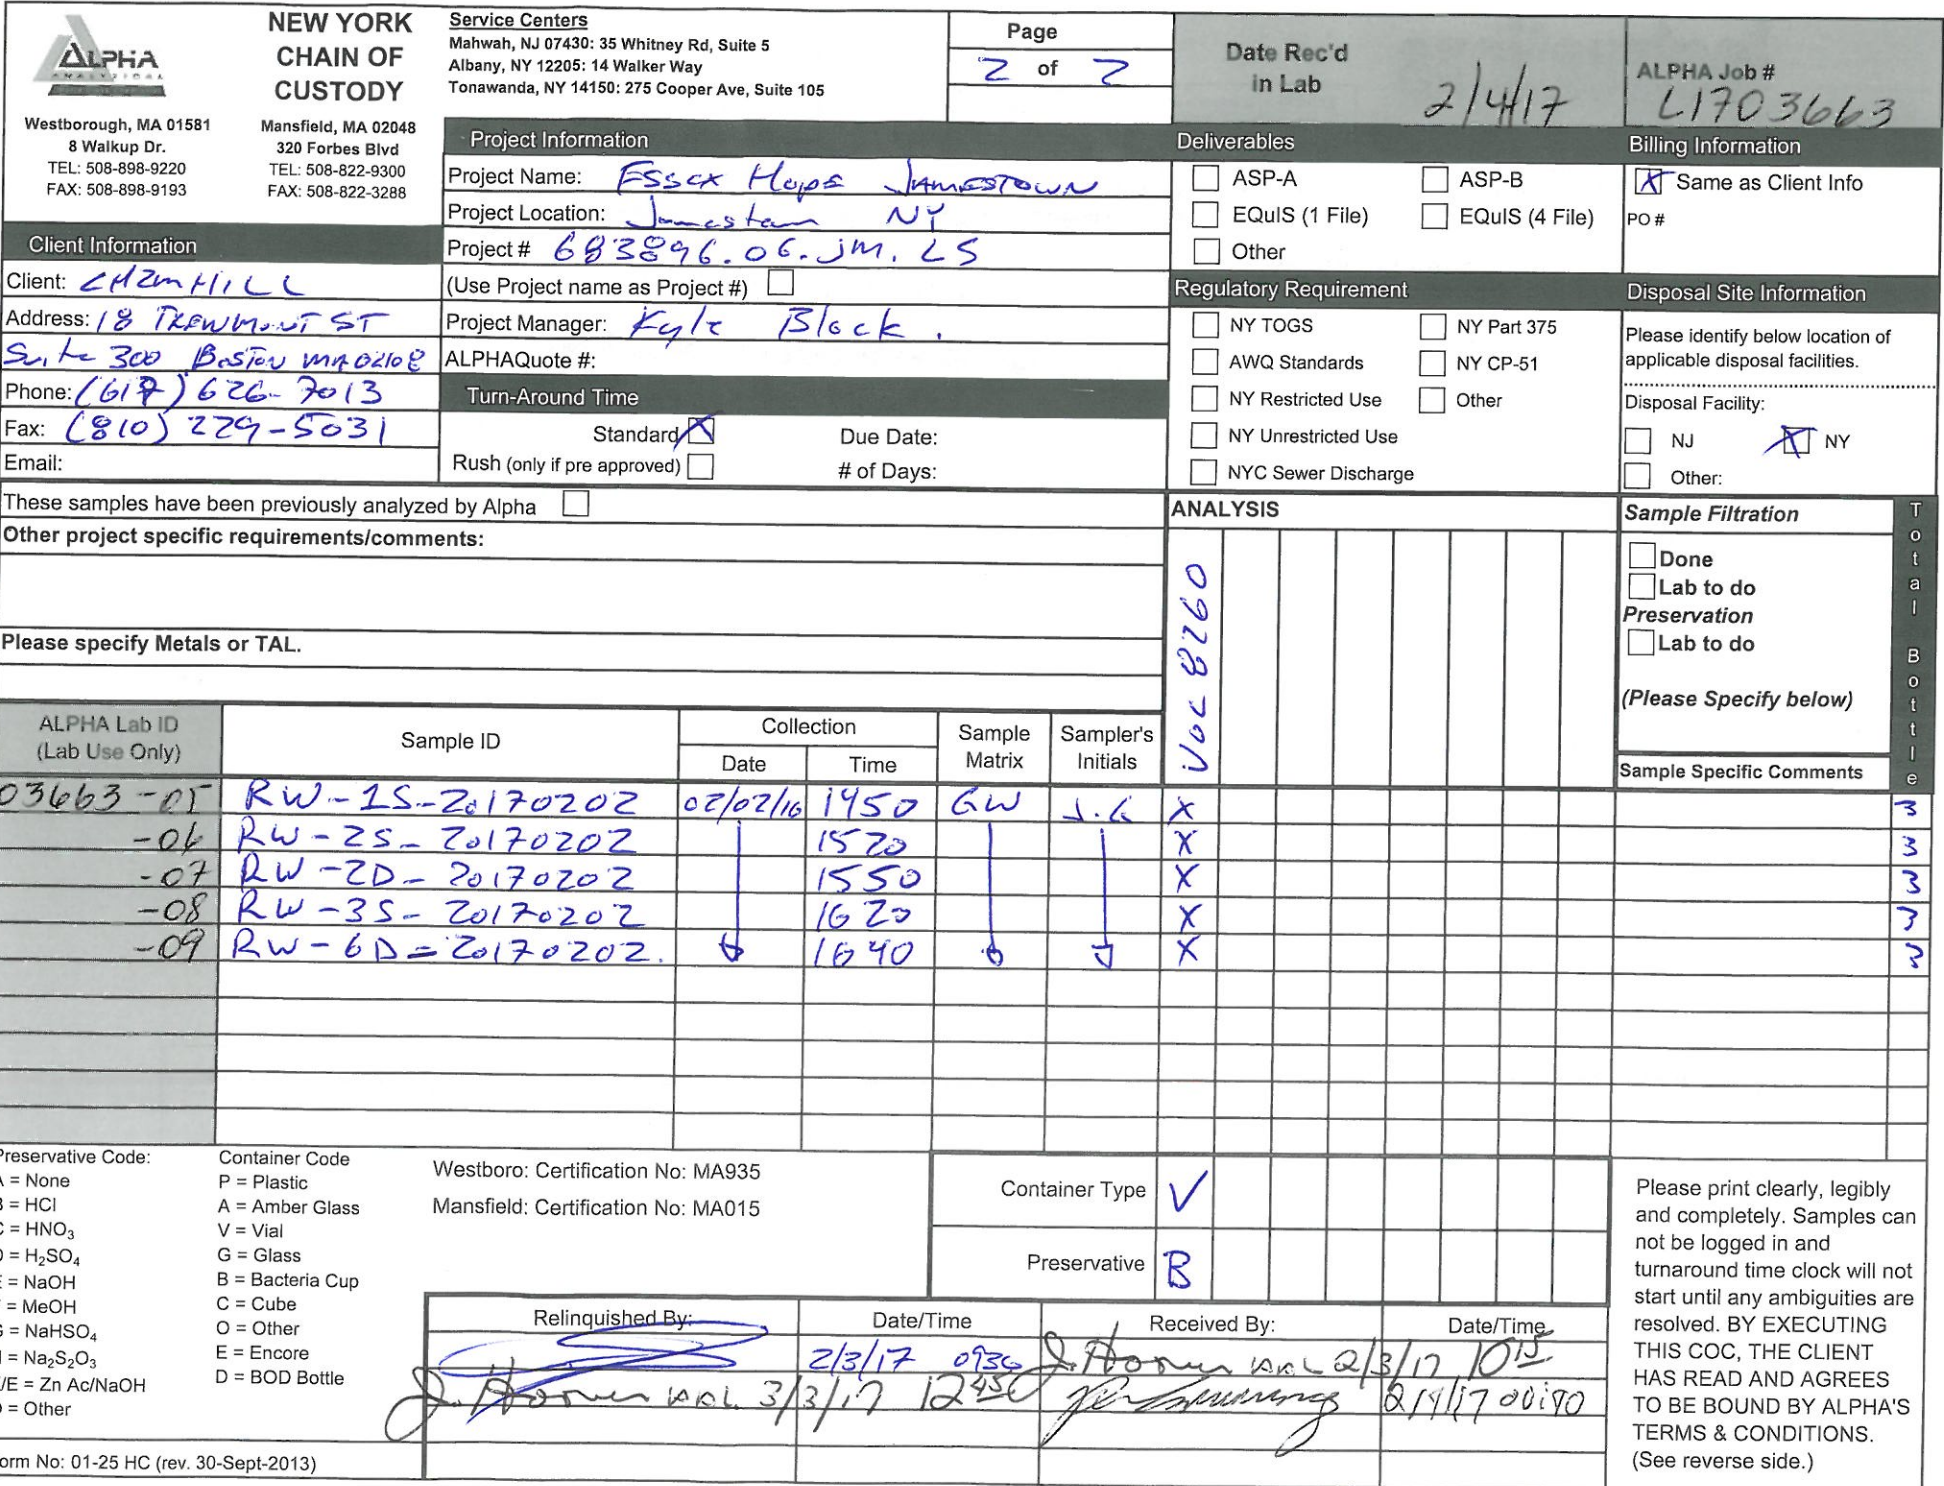 ALPHA
ANALYTICAL
NEW YORK
CHAIN OF
CUSTODY
Westborough, MA 01581
8 Walkup Dr.
TEL: 508-898-9220
FAX: 508-898-9193
Mansfield, MA 02048
320 Forbes Blvd
TEL: 508-822-9300
FAX: 508-822-3288
Service Centers
Mahwah, NJ 07430: 35 Whitney Rd, Suite 5
Albany, NY 12205: 14 Walker Way
Tonawanda, NY 14150: 275 Cooper Ave, Suite 105
Page
2 of 2
Date Rec'd
in Lab
2/4/17
ALPHA Job #
L1703663
Client Information
Client: CH2MHILL
Address: 18 Tremont ST
Suite 300 Boston MA 02108
Phone: (617) 626-7013
Fax: (810) 229-5031
Email:
Project Information
Project Name: Essex Hope JAMESTOWN
Project Location: Jamestown NY
Project # 683896.06.JM.LS
(Use Project name as Project #)
Project Manager: Kyle Block.
ALPHAQuote #:
Turn-Around Time
Standard X Due Date:
Rush (only if pre approved) # of Days:
Deliverables
ASP-A ASP-B
EQuIS (1 File) EQuIS (4 File)
Other
Regulatory Requirement
NY TOGS NY Part 375
AWQ Standards NY CP-51
NY Restricted Use Other
NY Unrestricted Use
NYC Sewer Discharge
Billing Information
X Same as Client Info
PO #
Disposal Site Information
Please identify below location of
applicable disposal facilities.
Disposal Facility:
NJ X NY
Other:
These samples have been previously analyzed by Alpha
Other project specific requirements/comments:
Please specify Metals or TAL.
ANALYSIS
VOC 8260
Sample Filtration
Done
Lab to do
Preservation
Lab to do
(Please Specify below)
Total Bottle
ALPHA Lab ID
(Lab Use Only)
Sample ID
Collection
Date Time
Sample
Matrix
Sampler's
Initials
Sample Specific Comments
03663-05 RW-1S-20170202 02/02/16 1450 GW J.G X 3
-06 RW-2S-20170202 1520 X 3
-07 RW-2D-20170202 1550 X 3
-08 RW-3S-20170202 1620 X 3
-09 RW-6D-20170202. 1640 X 3
Preservative Code:
A = None
B = HCl
C = HNO3
D = H2SO4
E = NaOH
F = MeOH
G = NaHSO4
H = Na2S2O3
K/E = Zn Ac/NaOH
O = Other
Container Code
P = Plastic
A = Amber Glass
V = Vial
G = Glass
B = Bacteria Cup
C = Cube
O = Other
E = Encore
D = BOD Bottle
Westboro: Certification No: MA935
Mansfield: Certification No: MA015
Container Type V
Preservative B
Relinquished By: Date/Time Received By: Date/Time
2/3/17 0930 J. Hoover AAL 2/3/17 1015
J. Hoover AAL 3/3/17 1245 2/4/17 00:40
Please print clearly, legibly
and completely. Samples can
not be logged in and
turnaround time clock will not
start until any ambiguities are
resolved. BY EXECUTING
THIS COC, THE CLIENT
HAS READ AND AGREES
TO BE BOUND BY ALPHA'S
TERMS & CONDITIONS.
(See reverse side.)
Form No: 01-25 HC (rev. 30-Sept-2013)